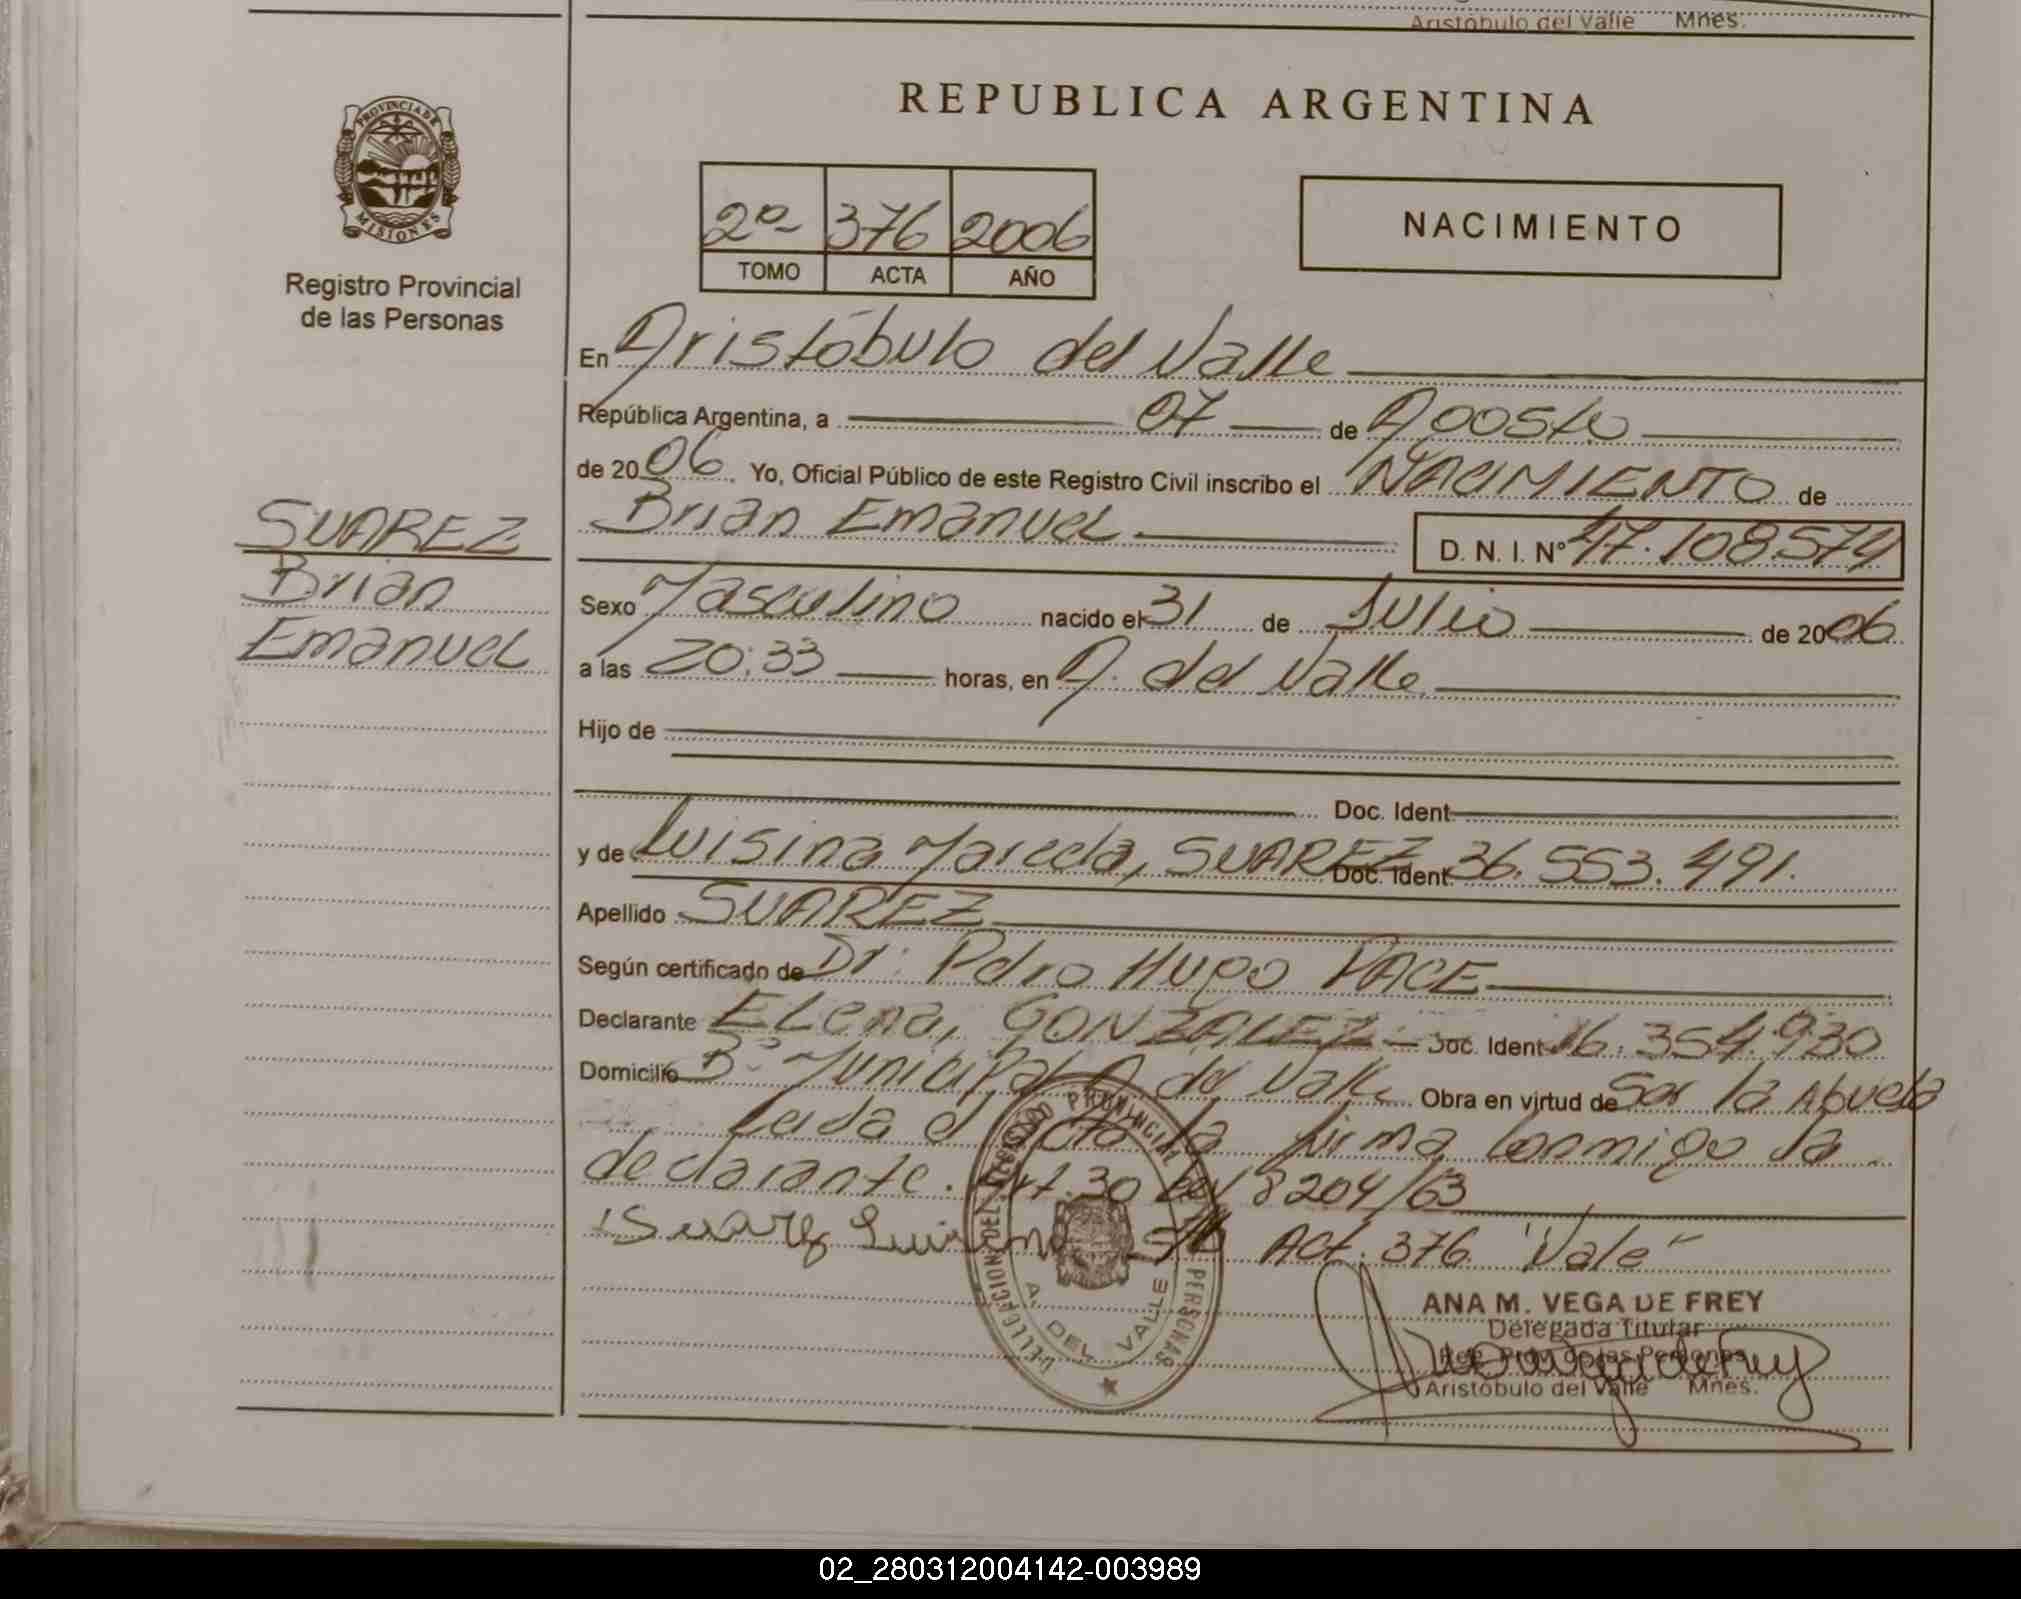 Aristóbulo del Valle Mnes.
REPUBLICA ARGENTINA
PROVINCIA DE MISIONES
Registro Provincial
de las Personas
2º 376 2006
TOMO ACTA AÑO
NACIMIENTO
En Aristóbulo del Valle
República Argentina, a 07 de Agosto
de 2006. Yo, Oficial Público de este Registro Civil inscribo el NACIMIENTO de
Brian Emanuel D. N. I. Nº 47.108574
SUAREZ
Brian
Emanuel
Sexo Masculino nacido el 31 de Julio de 2006
a las 20:33 horas, en A. del Valle
Hijo de
Doc. Ident
y de Luisina Marcela, SUAREZ Doc. Ident. 36.553.491.
Apellido SUAREZ
Según certificado de Dr. Pedro Hugo PACE
Declarante ELena, GONZALEZ Doc. Ident 16.354.930
Domicilio Bº Municipal A del Valle Obra en virtud de Ser la Abuela
Leida el acta la firma conmigo la
declarante. Art. 30 Ley 8204/63
Suarez Luisina S/R Act. 376 "Vale"
PROVINCIAL PERSONAS
A. DEL VALLE
ANA M. VEGA DE FREY
Delegada Titular
Reg. Prov. de las Personas
Aristóbulo del Valle Mnes.
02_280312004142-003989